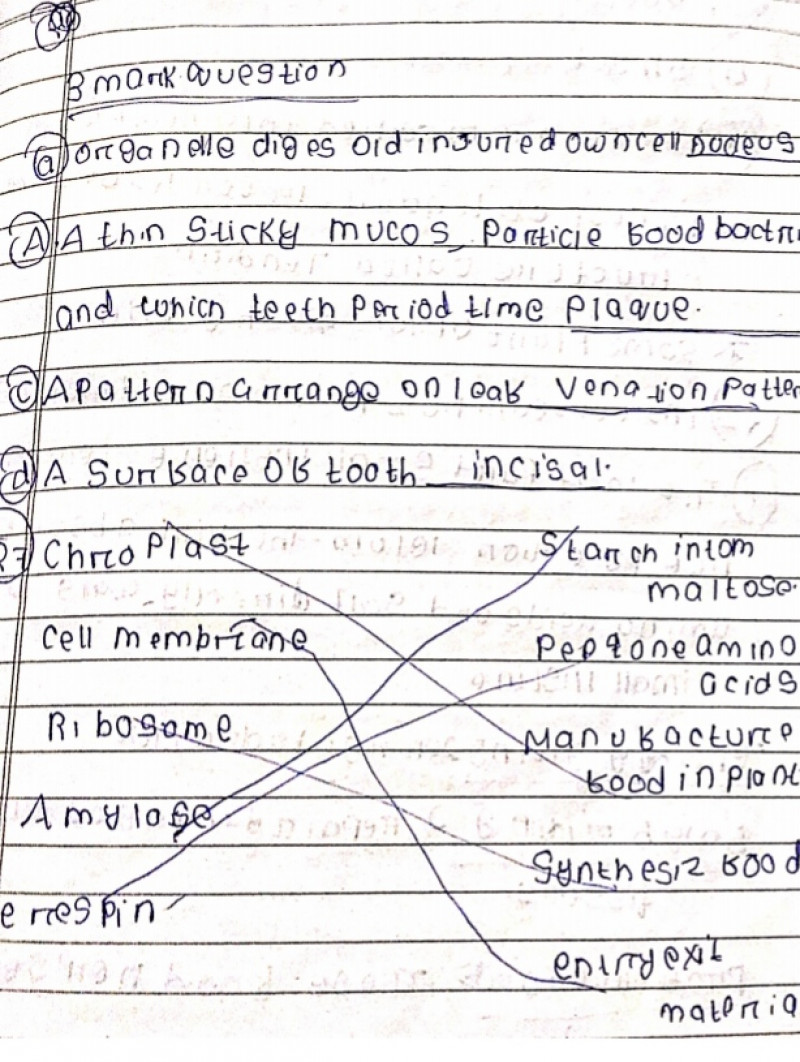 3 mark question
(a) organelle diges old insured own cell
(A) A thin sticky mucos, particle food bactri
and which teeth period time plaque.
(C) A pattern arrange on leaf Venation Patter
(d) A surface of tooth incisal.
Chro Plast Starch intom
maltose.
Cell membrane Peptone amino
acids
Ribosome Manufacture
food in plant
Amylase Synthesiz food
errespin
materia